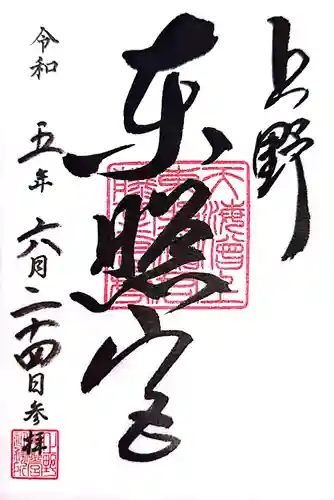 上野
東照宮
令和五年六月二十四日参拝